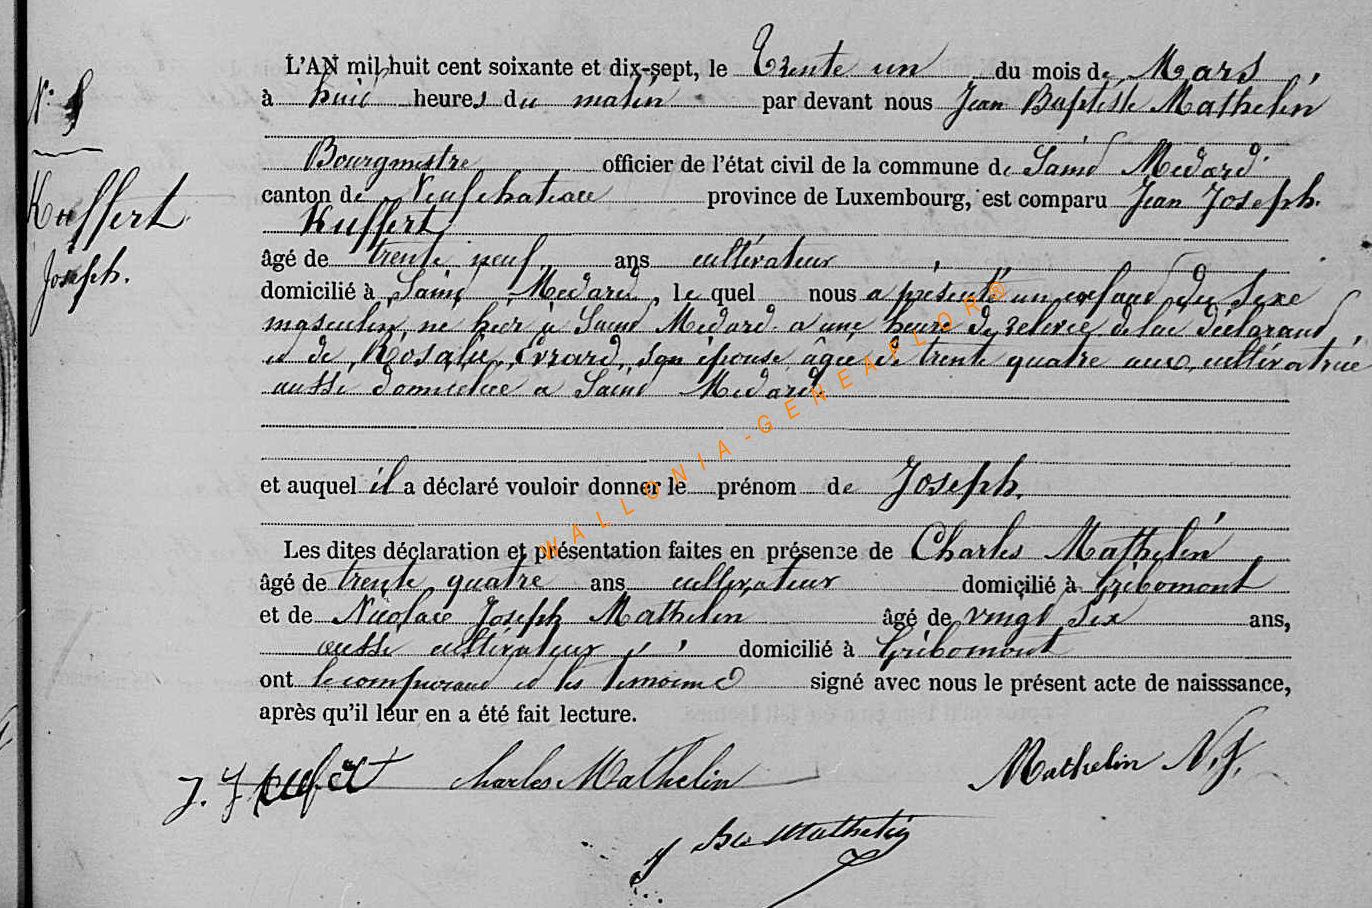 N° 8
Kuffert
Joseph.
L'AN mil huit cent soixante et dix-sept, le Trente un du mois de Mars,
à huit heures du matin par devant nous Jean Baptiste Mathelin
Bourgmestre officier de l'état civil de la commune de Saint Medard
canton de Neufchateau province de Luxembourg, est comparu Jean Joseph
Kuffert
âgé de trente neuf ans cultivateur
domicilié à Saint Medard, le quel nous a présenté un enfant du sexe
masculin né hier à Saint Medard a une heure de relevée de lui déclarant
et de Rosalie Evrard, son épouse âgée de trente quatre ans, cultivatrice
aussi domiciliée a Saint Medard.
et auquel il a déclaré vouloir donner le prénom de Joseph.
Les dites déclaration et présentation faites en présence de Charles Mathelin
âgé de trente quatre ans cultivateur domicilié à Gribomont
et de Nicolas Joseph Mathelin âgé de vingt six ans,
aussi cultivateur domicilié à Gribomont
ont le comparant et les temoins signé avec nous le présent acte de naisssance,
après qu'il leur en a été fait lecture.
J. J. Charles Mathelin Mathelin N. J.
J Bte Mathelin
WALLONIA-GENEAFLOR®